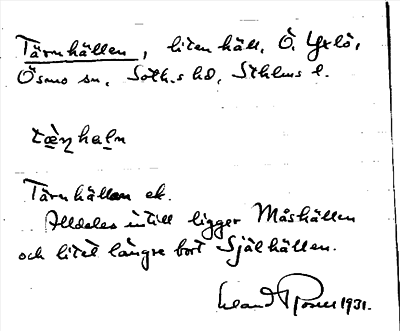 Tärnhällen, liten häll, Ö. Yxlö,
Ösmo sn, Soth.s hd, Sthlms l.
tæ̀ɳhaln
Tärnhällan ek.
Alldeles intill ligger Måshällen
och litet längre bort Själhällen.
Erland Rosell 1931.